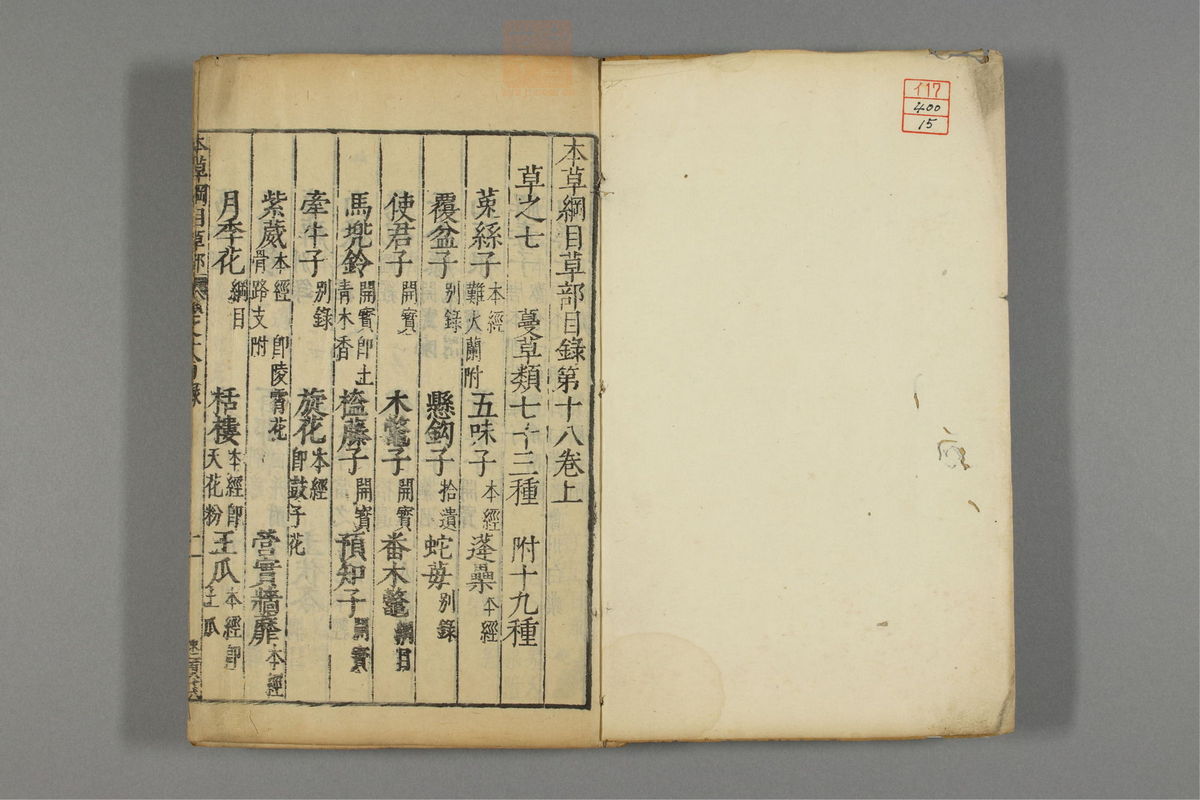 本草綱目草部目録第十八卷上
草之七 蔓草類七十三種 附十九種
菟絲子 本經 難火蘭附 五味子 本經 蓬虆 本經
覆盆子 别錄 懸鈎子 拾遺 蛇莓 别錄
使君子 開寳 木鼈子 開寳 番木鼈 綱目
馬兜鈴 開寳 卽土青木香 榼藤子 開寳 預知子 開寳
牽牛子 别錄 旋花 本經 卽鼓子花
紫葳 本經 卽陵霄花 骨路支附 營實牆蘼 本經
月季花 綱目 栝樓 本經 卽天花粉 王瓜 本經 卽土瓜
本草綱目草部
イ17
400
15